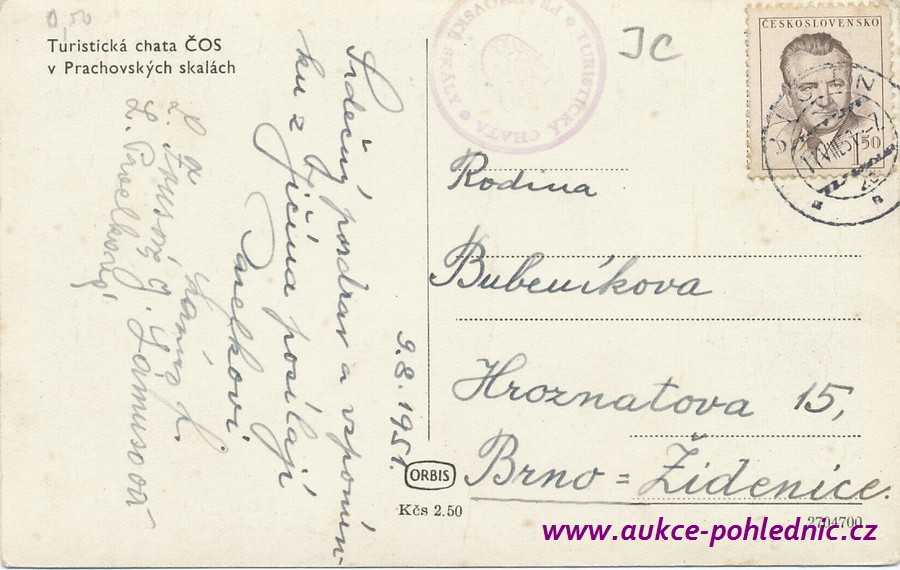 Turistická chata ČOS
v Prachovských skalách
Srdečný pozdrav a vzpomín-
ku z Jičína posílají
Pavelkovi.
9.8.1951.
TURISTICKÁ CHATA • PRACHOVSKÉ SKÁLY •
JC
ČESKOSLOVENSKO
1 50
Rodina
Bubeníkova
Hroznatova 15,
Brno = Židenice.
ORBIS
Kčs 2.50
2704700
www.aukce-pohlednic.cz